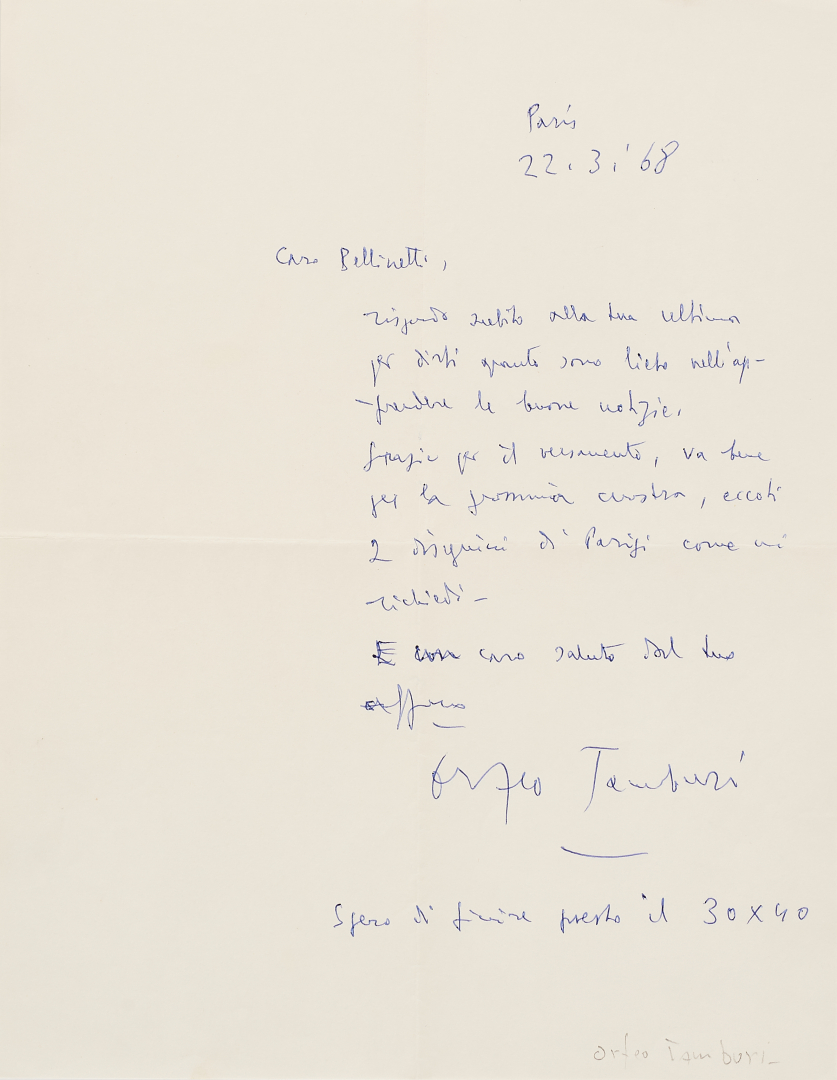 Paris
22.3.'68
Caro Bellinetti,
rispondo subito alla tua ultima
per dirti quanto sono lieto nell'ap-
-prendere le buone notizie.
Grazie per il versamento, va bene
per la prossima mostra, eccoti
2 disegnini di Parigi come mi
richiedi -
E un caro saluto dal tuo
aff.mo
Orfeo Tamburi
Spero di finire presto il 30x40
Orfeo Tamburi -